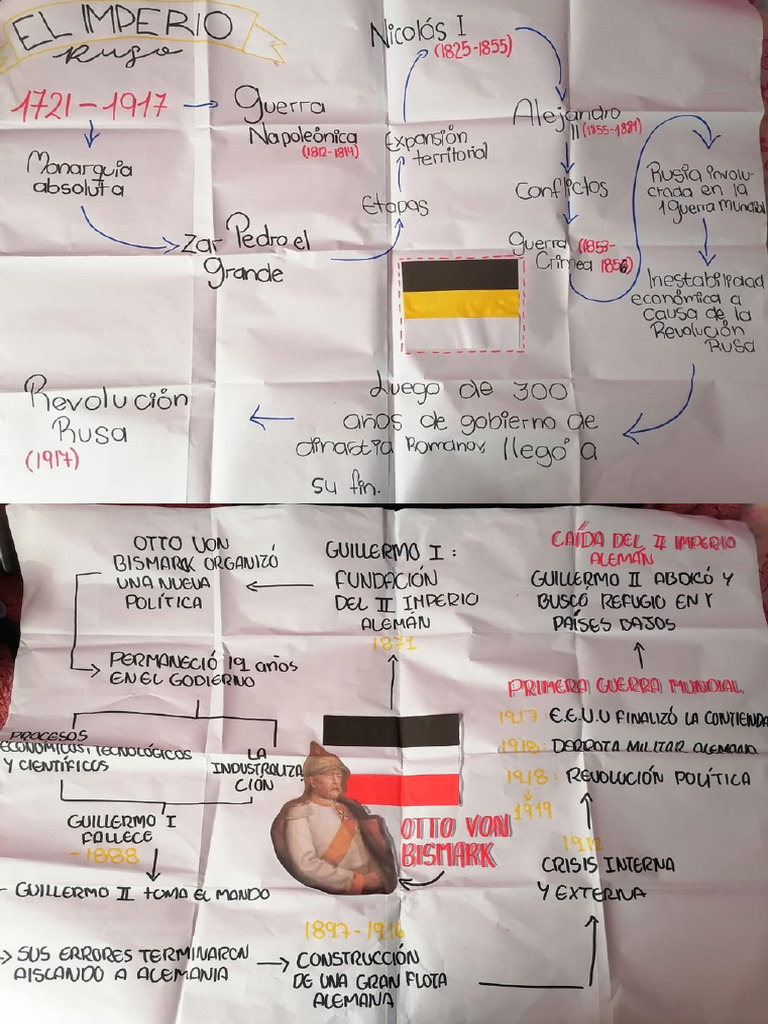 EL IMPERIO
Ruso
1721-1917
Monarquía
absoluta
Zar Pedro el
grande
Guerra
Napoleónica
(1812-1814)
Etapas
Expansión
territorial
Nicolás I
(1825-1855)
Alejandro
II (1855-1881)
Conflictos
guerra (1853-
Crimea 1856)
Rusia involu-
ctada en la
1 guerra mundial
Inestabilidad
económica a
causa de la
Revolución
Rusa
Luego de 300
años de gobierno de
dinastia Romanov, llegó a
su fin.
Revolución
Rusa
(1917)
OTTO VON
BISMARK ORGANIZÓ
UNA NUEVA
POLÍTICA
GUILLERMO I:
FUNDACIÓN
DEL II IMPERIO
ALEMÁN
1871
CAÍDA DEL II IMPERIO
ALEMÁN
GUILLERMO II ABDICÓ Y
BUSCÓ REFUGIO EN
PAÍSES BAJOS
PERMANECIÓ 19 años
EN EL GOBIERNO
PROCESOS
ECONÓMICOS, TECNOLÓGICOS
Y CIENTÍFICOS
LA
INDUSTRALIZA
CIÓN
GUILLERMO I
FALLECE
-1888
GUILLERMO II TOMA EL MANDO
SUS ERRORES TERMINARON
AISLANDO A ALEMANIA
1897-1916
CONSTRUCCIÓN
DE UNA GRAN FLOTA
ALEMANA
OTTO VON
BISMARK
CRISIS INTERNA
Y EXTERNA
PRIMERA GUERRA MUNDIAL
1917 E.E.U.U FINALIZÓ LA CONTIENDA
1918: DERROTA MILITAR ALEMANA
1918: REVOLUCIÓN POLÍTICA
1919